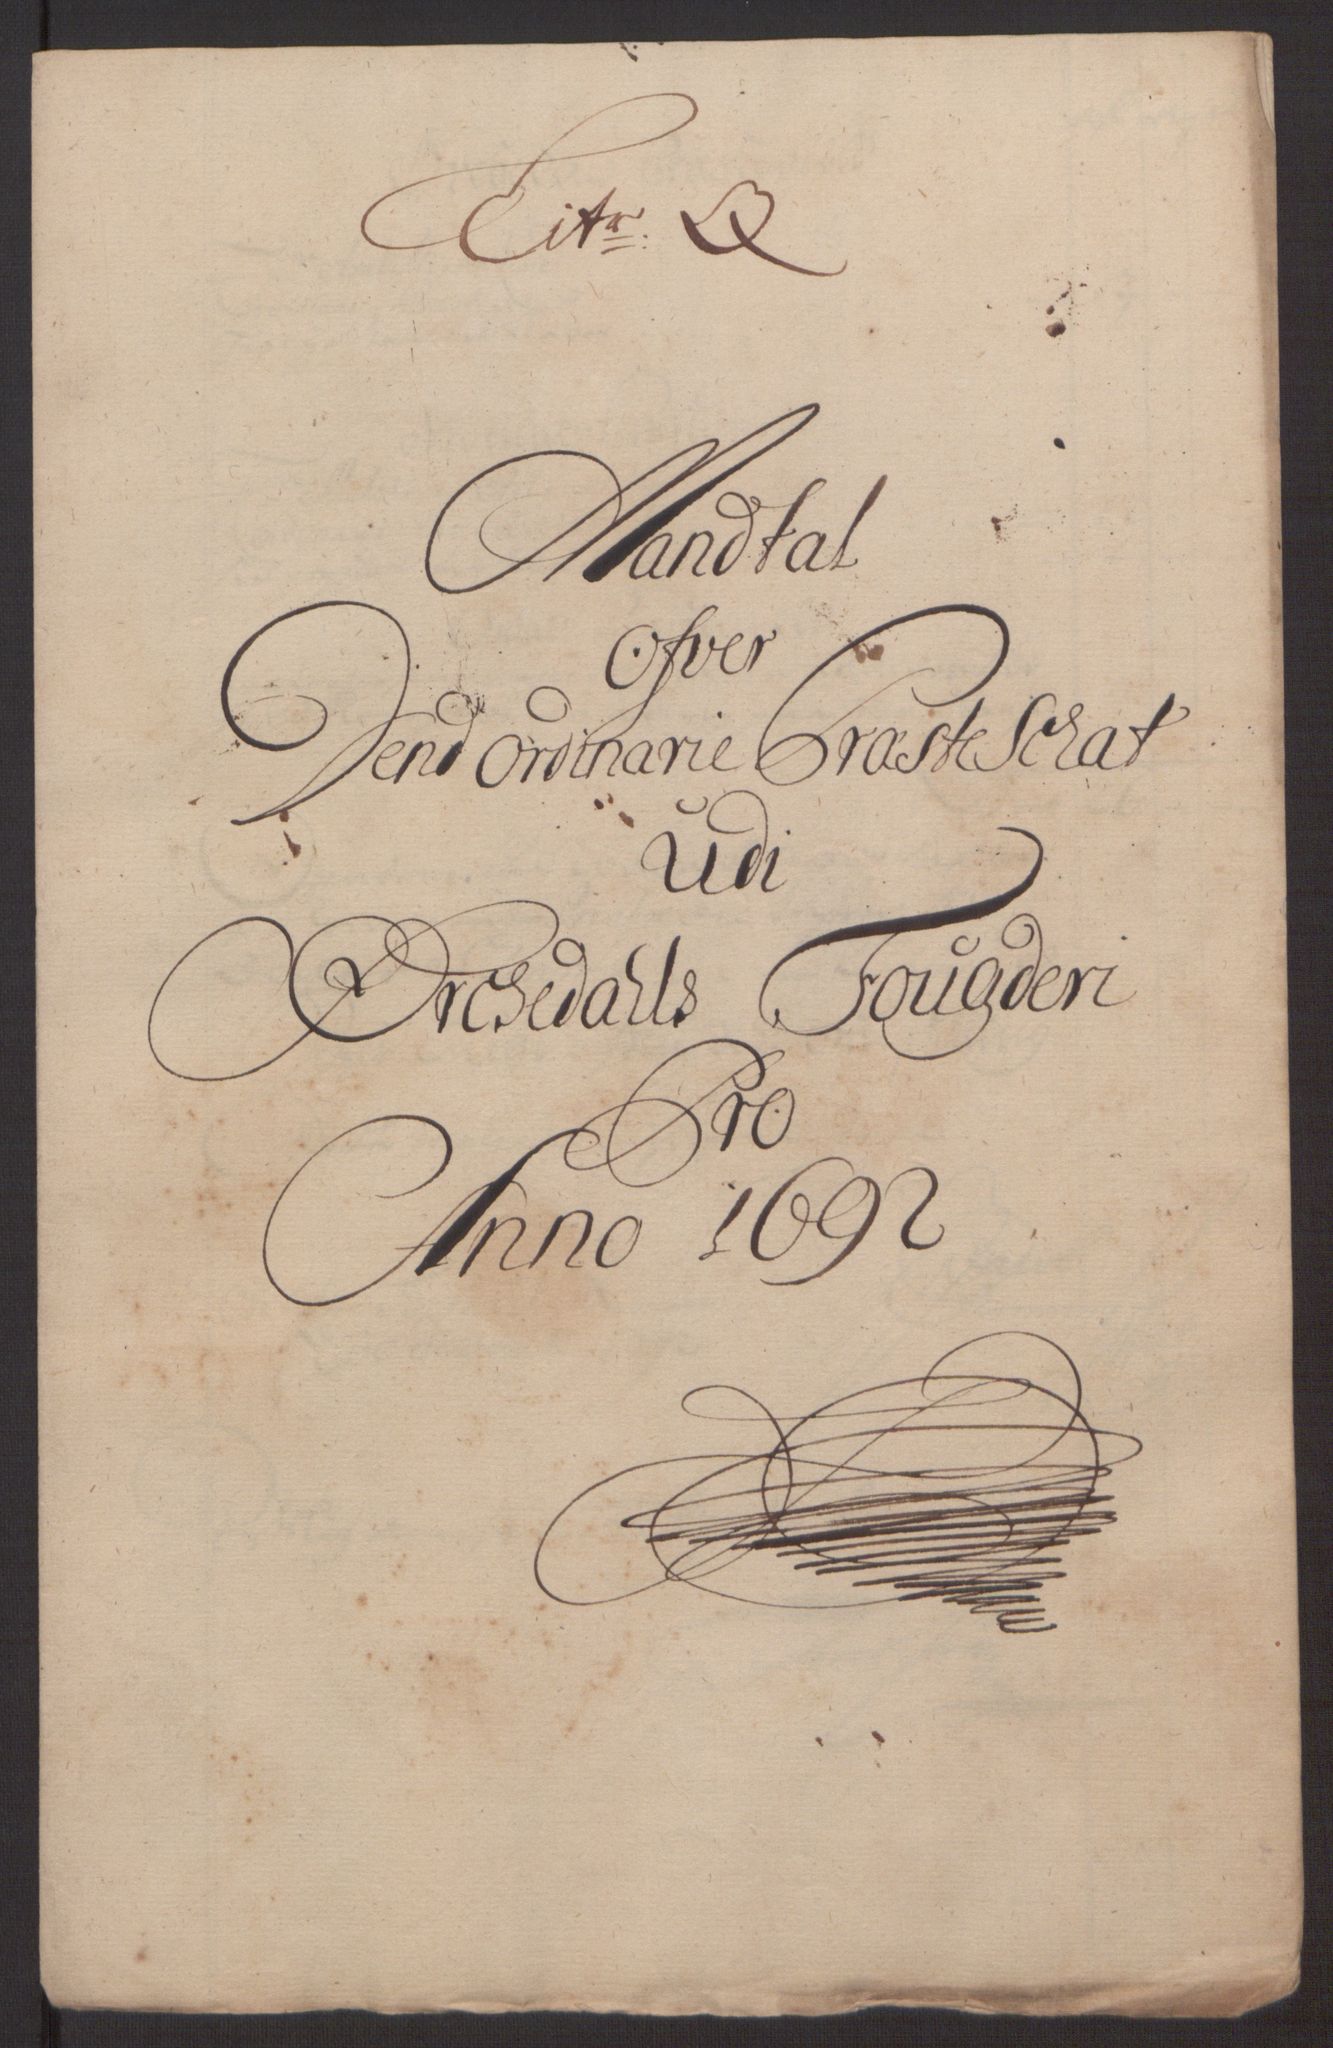 Litr: Q
Mandtal
Ofver
Dend Ordinarie Præste Schat
Udi
Orchedahls Fougderi
Pro
Anno 1692